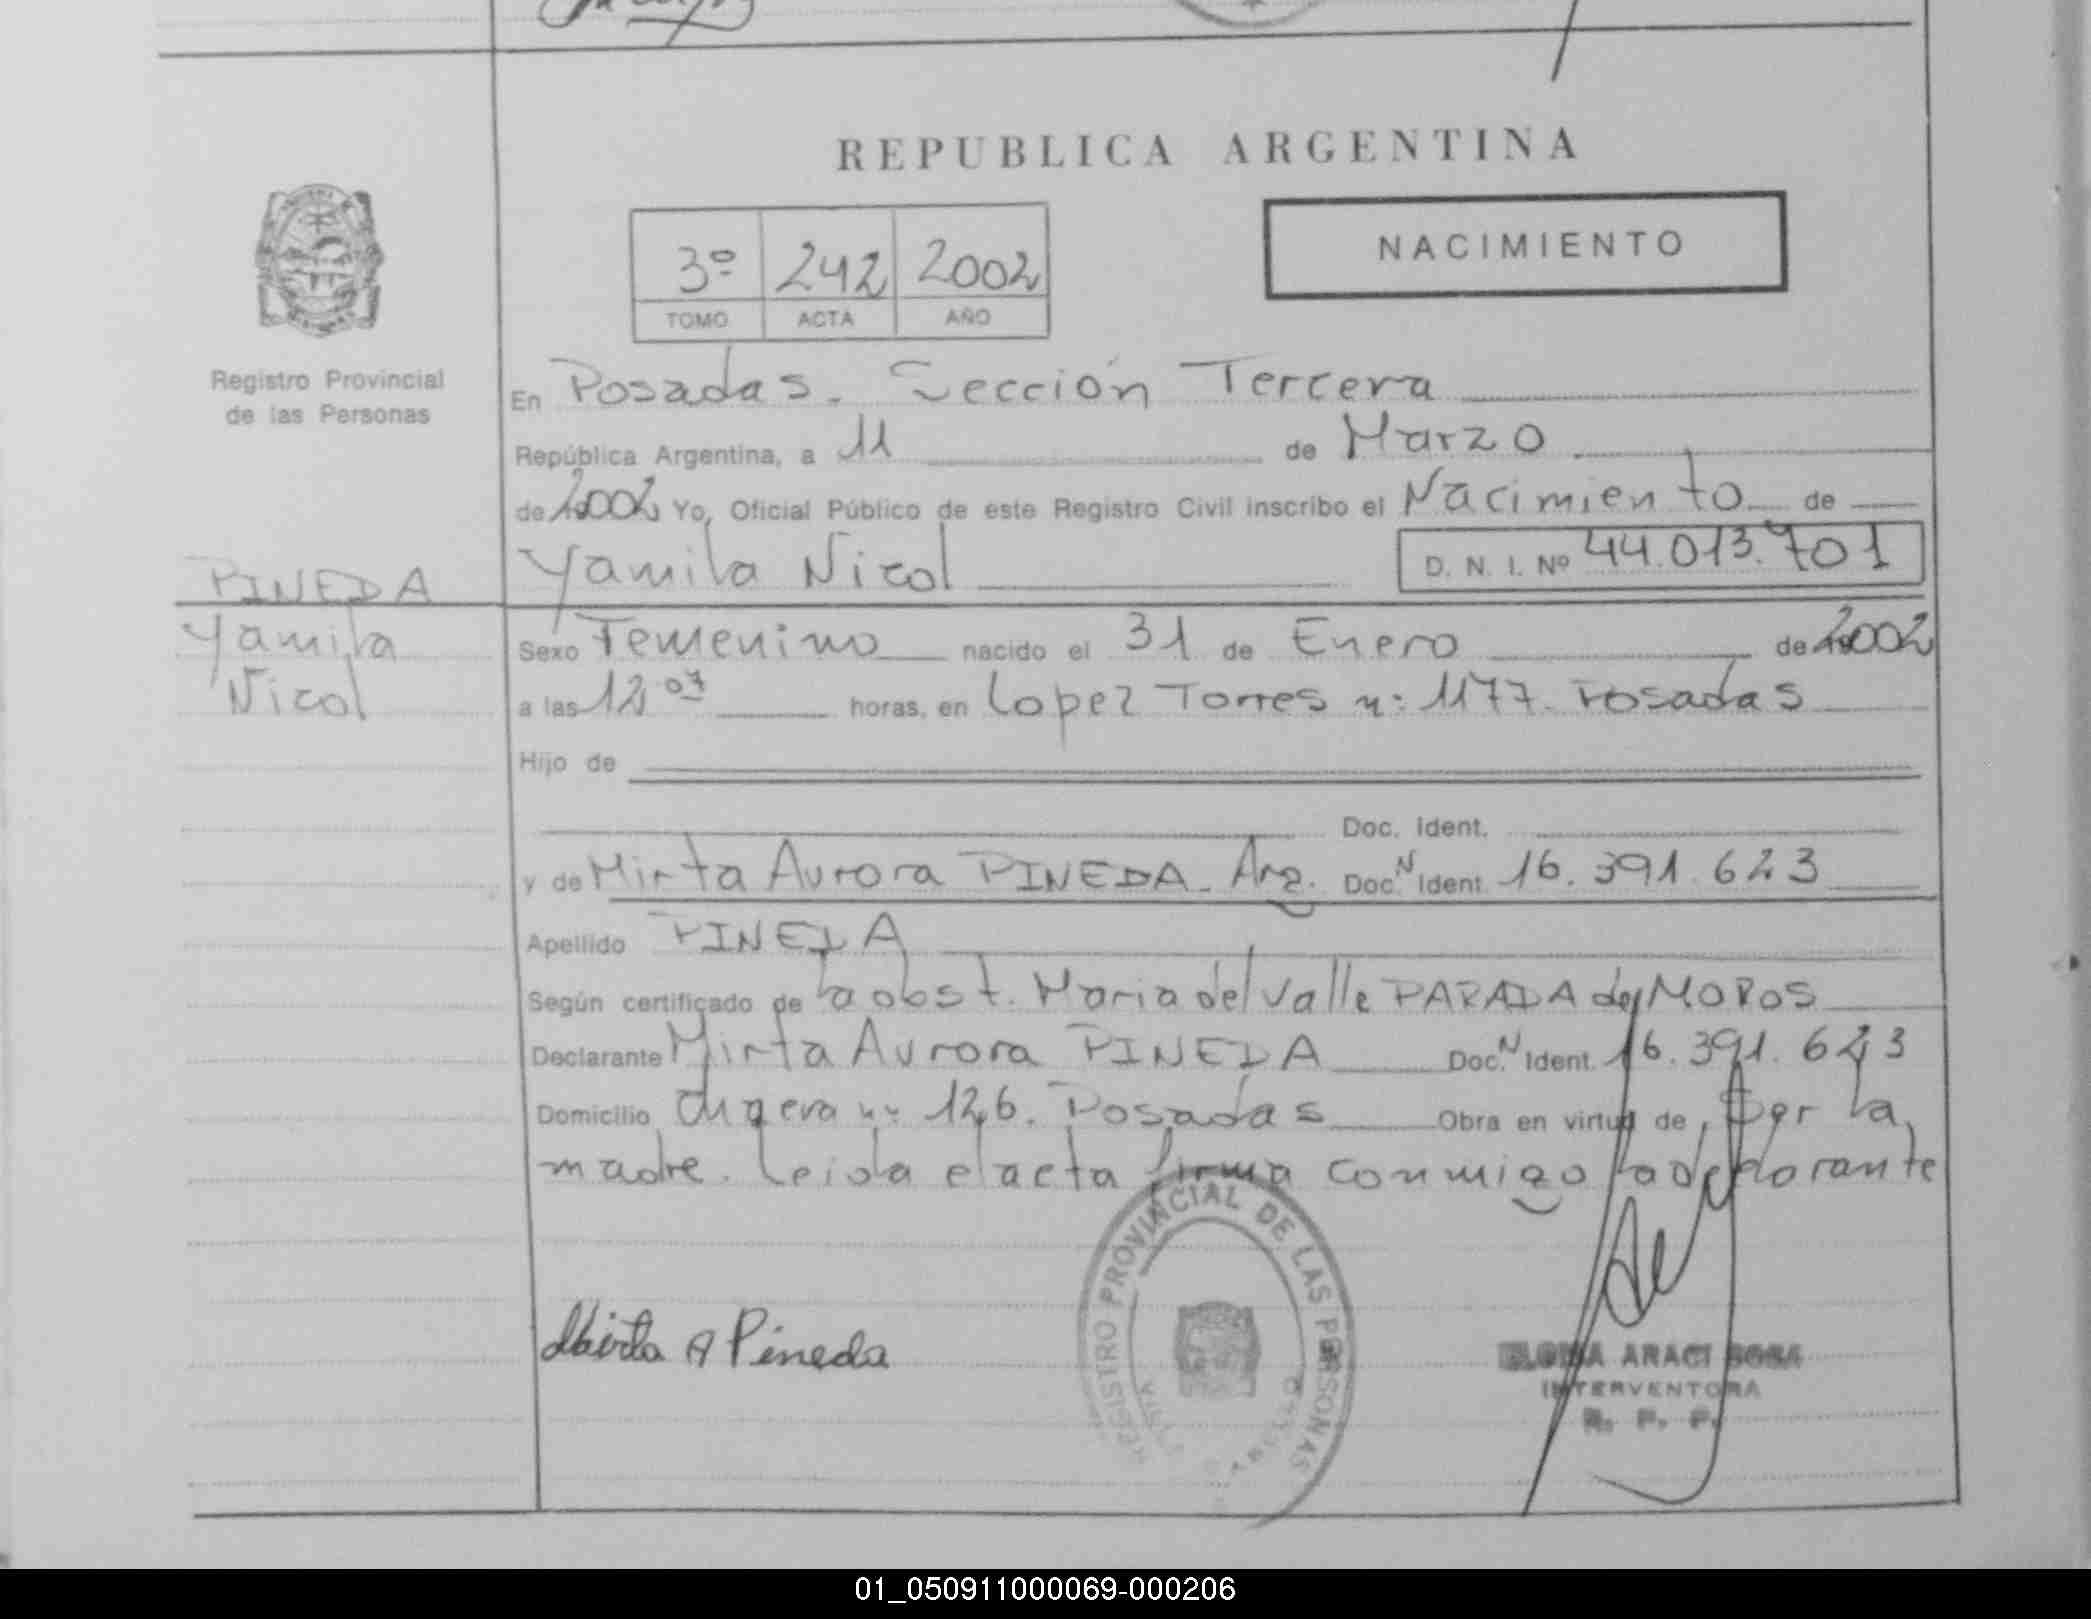 REPUBLICA ARGENTINA
NACIMIENTO
3º 242 2002
TOMO ACTA AÑO
Registro Provincial
de las Personas
En Posadas. Sección Tercera
República Argentina, a 11 de Marzo
de 2002 Yo, Oficial Público de este Registro Civil inscribo el Nacimiento de
Yamila Nicol D. N. I. Nº 44.013.701
PINEDA
Yamila
Nicol
Sexo Femenino nacido el 31 de Enero de 2002
a las 12 07 horas, en Lopez Torres n: 1177. Posadas
Hijo de
Doc. Ident.
y de Mirta Aurora PINEDA. Arg. Doc. N Ident. 16.391.623
Apellido PINEDA
Según certificado de la obst. Maria del Valle PARADA de MOROS
Declarante Mirta Aurora PINEDA Doc. N Ident. 16.391.623
Domicilio n: 126. Posadas Obra en virtud de Ser la
madre. Leida el acta firma conmigo la declarante
Mirta A Pineda
REGISTRO PROVINCIAL DE LAS PERSONAS
ARACI SOSA
INTERVENTORA
R. P. P.
01_050911000069-000206